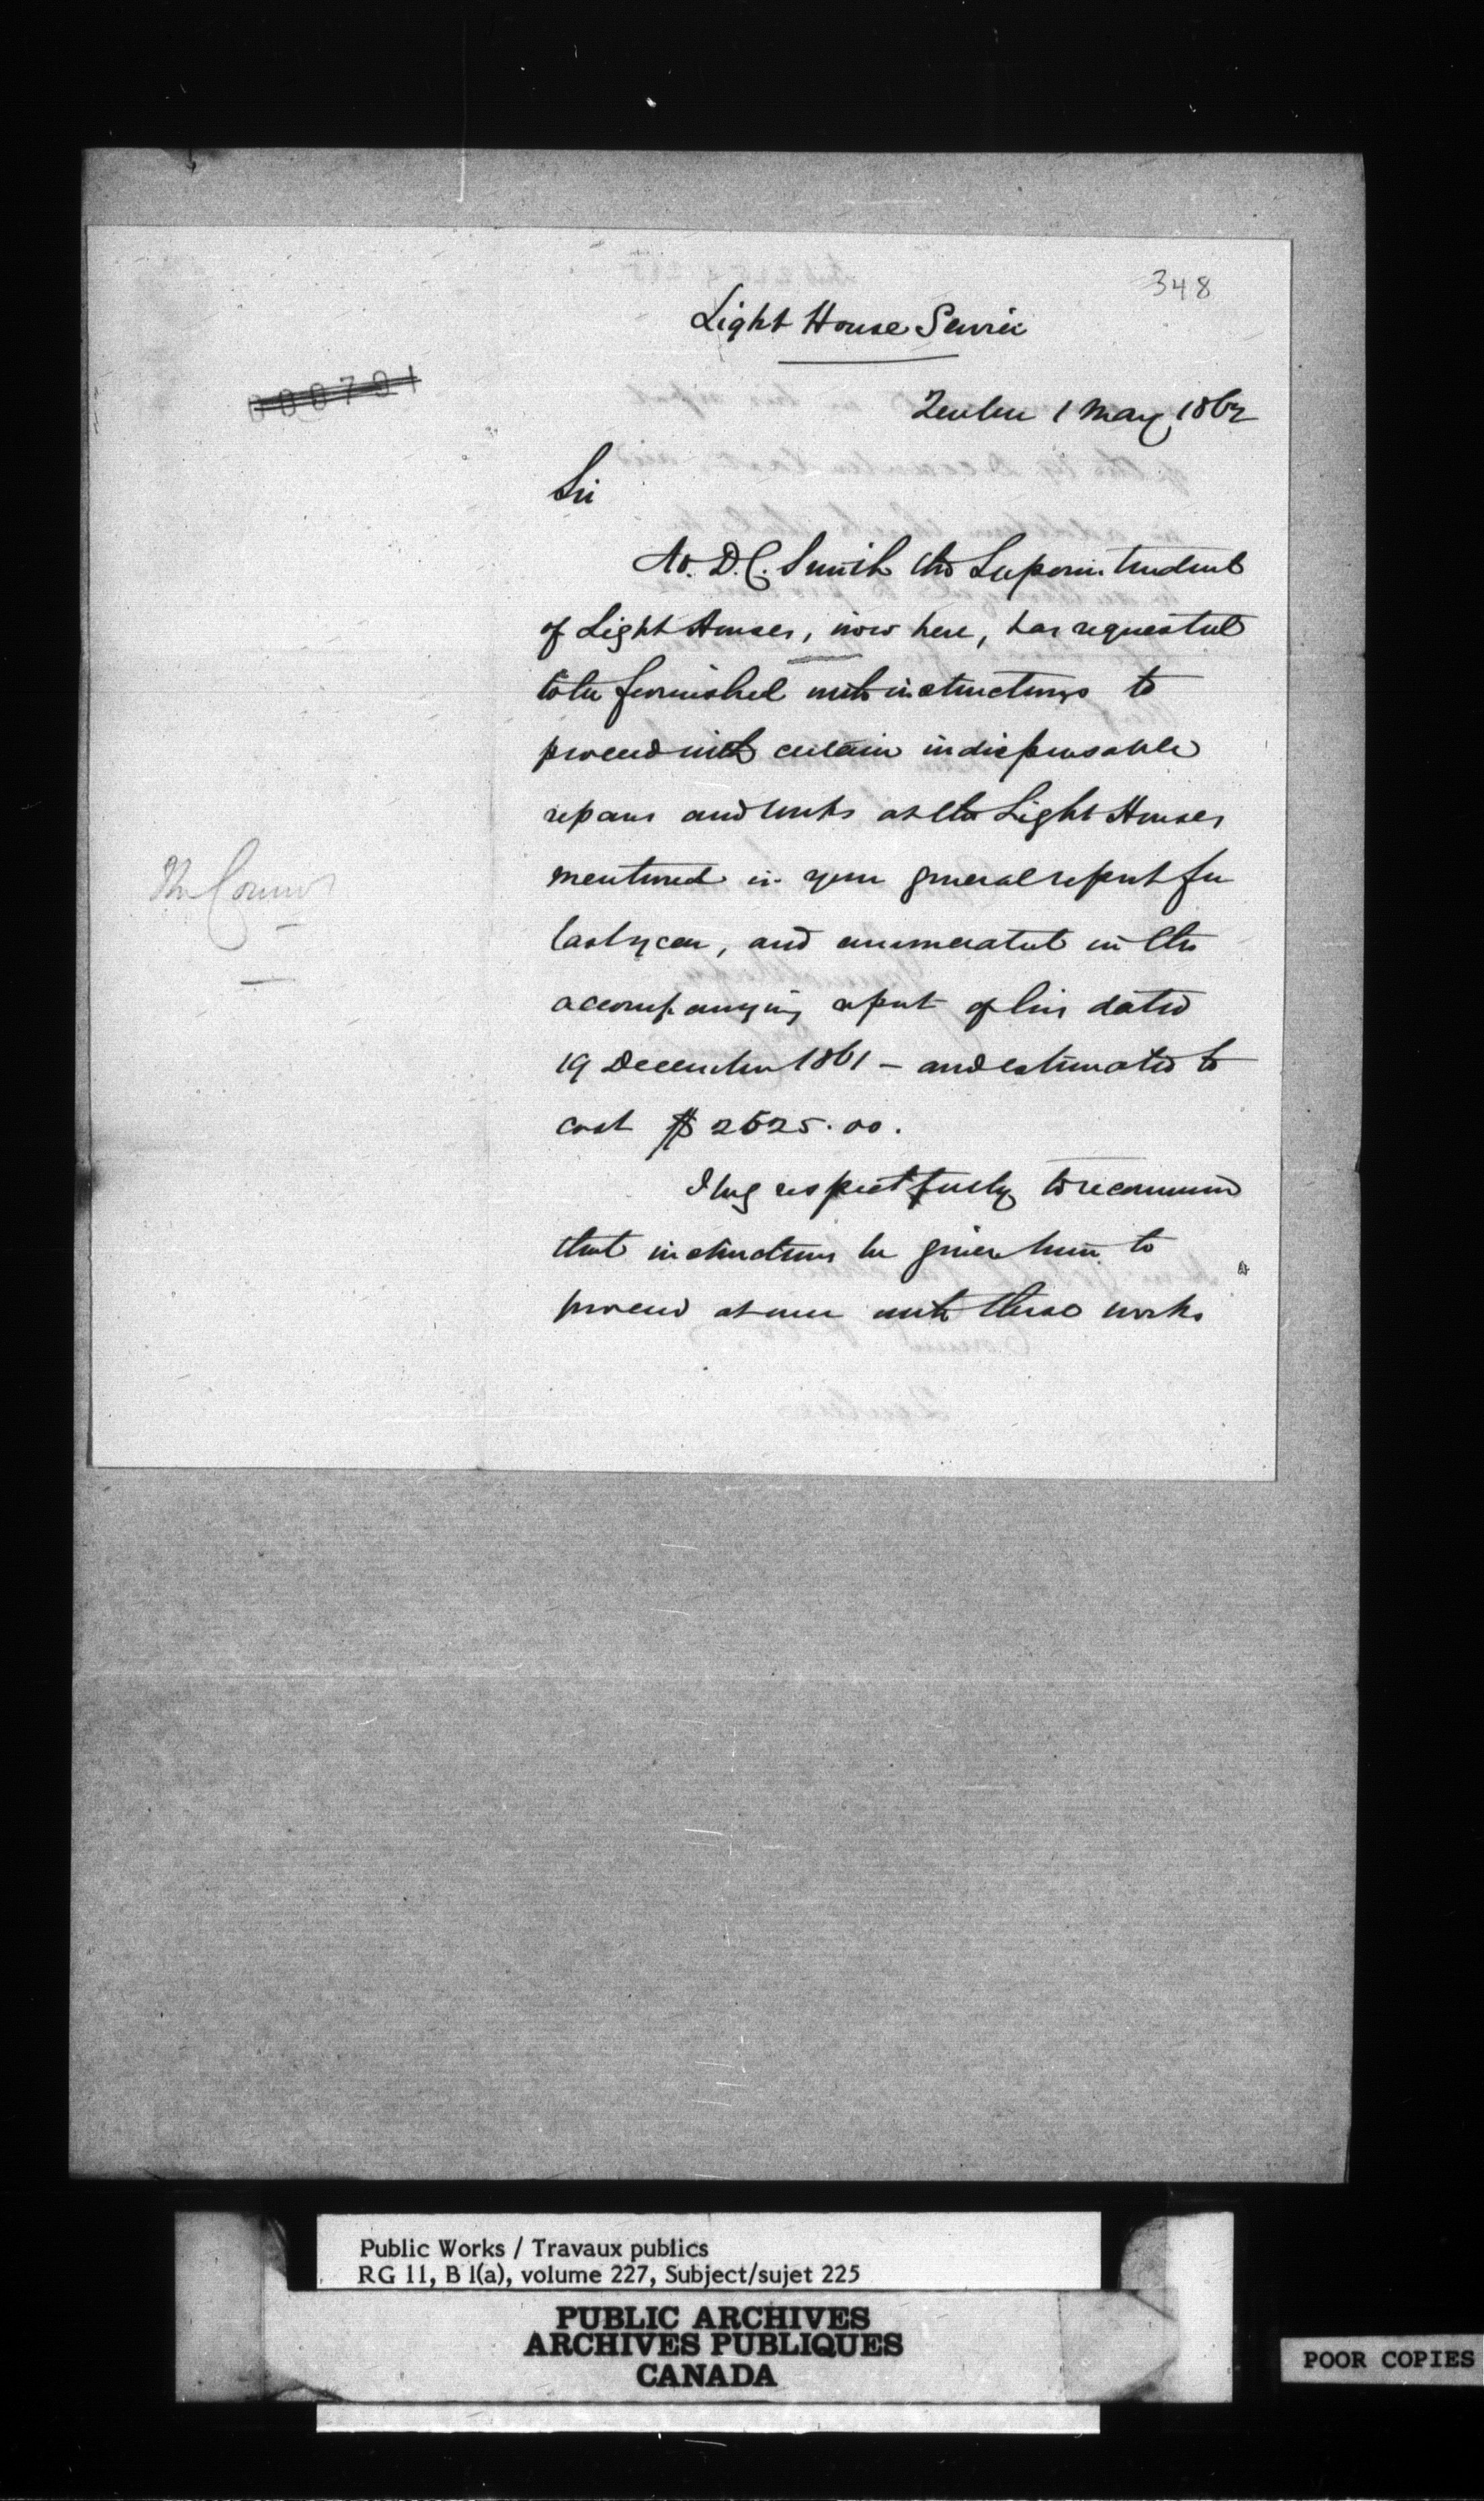 348
Light House Service
000791
Quebec 1 May 1862
Sir
Mr. D.C. Smith the Superintendent
of Light Houses, now here, has requested
to be furnished with instructions to
proceed with certain indispensable
repairs and works at the Light Houses
mentioned in your general report for
last year, and enumerated in the
accompanying report of his dated
19 December 1861 - and estimated to
cost $2525.00.
I beg respectfully to recommend
that instructions be given him to
proceed at once with these works
Public Works / Travaux publics
RG 11, B 1(a), volume 227, Subject/sujet 225
PUBLIC ARCHIVES
ARCHIVES PUBLIQUES
CANADA
POOR COPIES